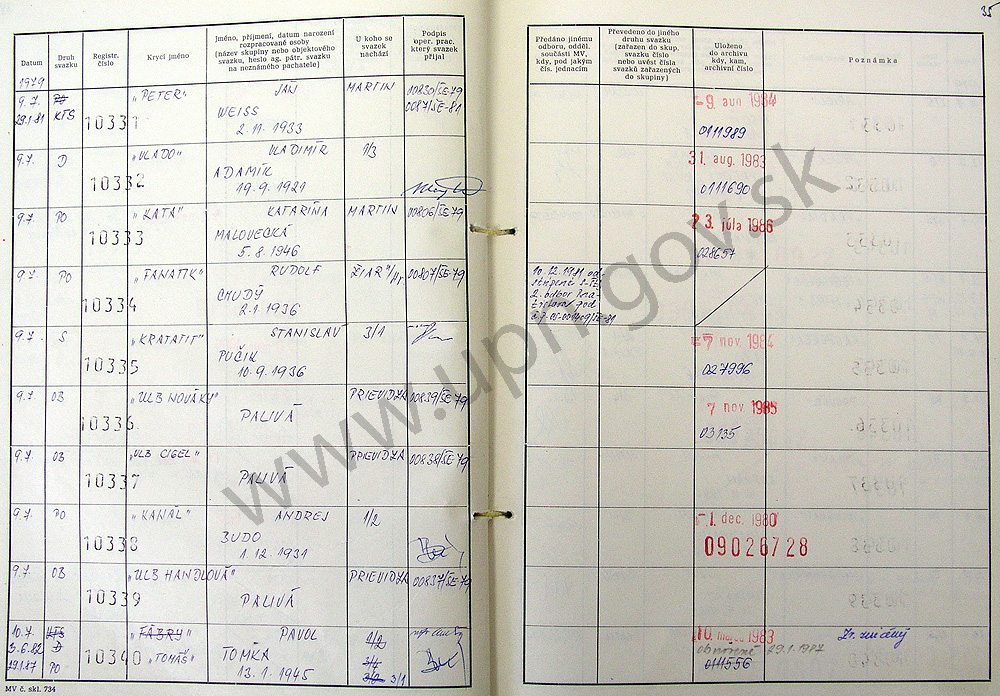 35
Datum
Druh svazku
Registr. číslo
Krycí jméno
Jméno, příjmení, datum narození rozpracované osoby (název skupiny nebo objektového svazku, heslo ag. pátr. svazku na neznámého pachatele)
U koho se svazek nachází
Podpis oper. prac. který svazek přijal
Předáno jinému odboru, odděl. součásti MV, kdy, pod jakým čís. jednacím
Převedeno do jiného druhu svazku (zařazen do skup. svazku číslo nebo uvést čísla svazků zařazených do skupiny)
Uloženo do archivu kdy, kam, archivní číslo
Poznámka
1979
9.7. PO "PETER" JAN MARTIN 00830/SE-79
29.1.81 KTS 10331 WEISS 0087/SE-81
2.11.1933
- 9. aug 1984
0111989
9.7. D "VLADO" VLADIMÍR 1/3
10332 ADAMÍK
19.9.1921
31. aug. 1983
0111690
9.7. PO "KATA" KATARÍNA MARTIN 00806/SE-79
10333 MALOVECKÁ
5.8.1946
23. júla 1986
028657
9.7. PO "FANATIK" RUDOLF ŽIAR n/Hr 00807/SE-79
10334 CHUDÝ
2.1.1936
10.12.1981
2. odbor
9.7. S "KRATATIT" STANISLAV 3/1
10335 PUČIK
10.9.1936
- 7 nov. 1984
027996
9.7. OB "ULB NOVÁKY" PRIEVIDZA 00839/SE-79
10336 PALIVÁ
7 nov. 1985
03135
9.7. OB "ULB CIGEL" PRIEVIDZA 00838/SE-79
10337 PALIVÁ
9.7. PO "KANAL" ANDREJ 1/2
10338 BUDO
1.12.1931
- 1. dec. 1980
09026728
9.7. OB "ULB HANDLOVÁ" PRIEVIDZA 00837/SE-79
10339 PALIVÁ
10.7. KTS "FÁBRY" PAVOL 2/2
3.6.82 D 10340 "TOMÁŠ" TOMKA 3/4
29.1.87 PO 13.1.1945 3/1
10. 1983
obnovené 29.1.1987
0111556
MV č. skl. 734
www.upn.gov.sk